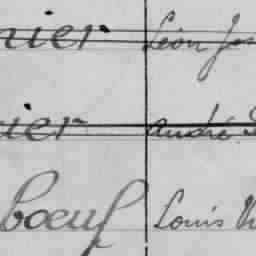 nier Léon
rier André
boeuf Louis